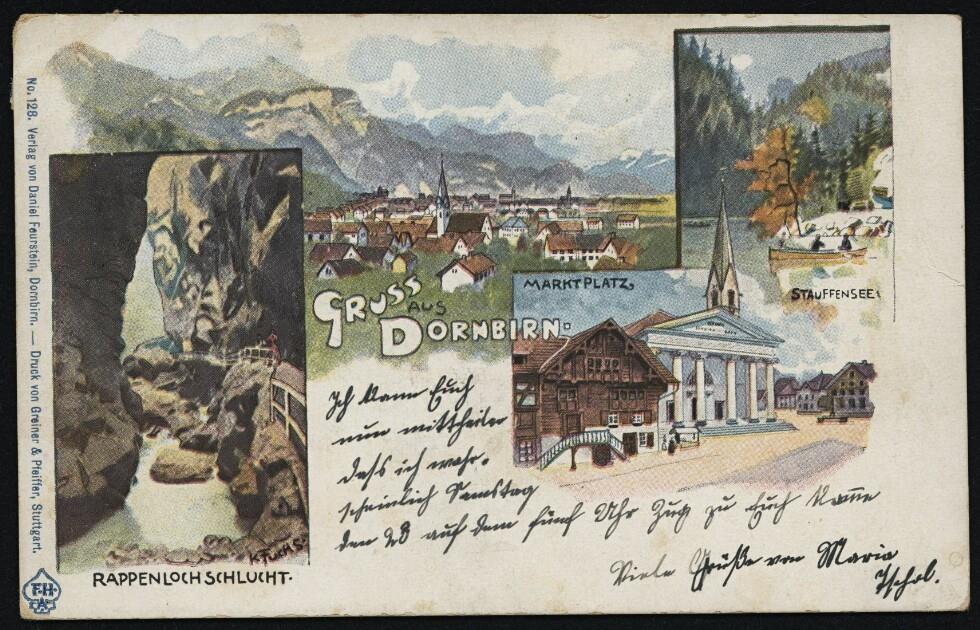 No. 128. Verlag von Daniel Feurstein, Dornbirn. — Druck von Greiner & Pfeiffer, Stuttgart.
GRUSS AUS
DORNBIRN.
MARKTPLATZ.
STAUFFENSEE.
RAPPENLOCHSCHLUCHT.
K. Fuchs.
Ich kann Euch
nun mittheilen
dass ich wahr-
scheinlich Samstag
den 28 auf dem fünf Uhr Zug zu Euch kome
Viele Grüße von Maria